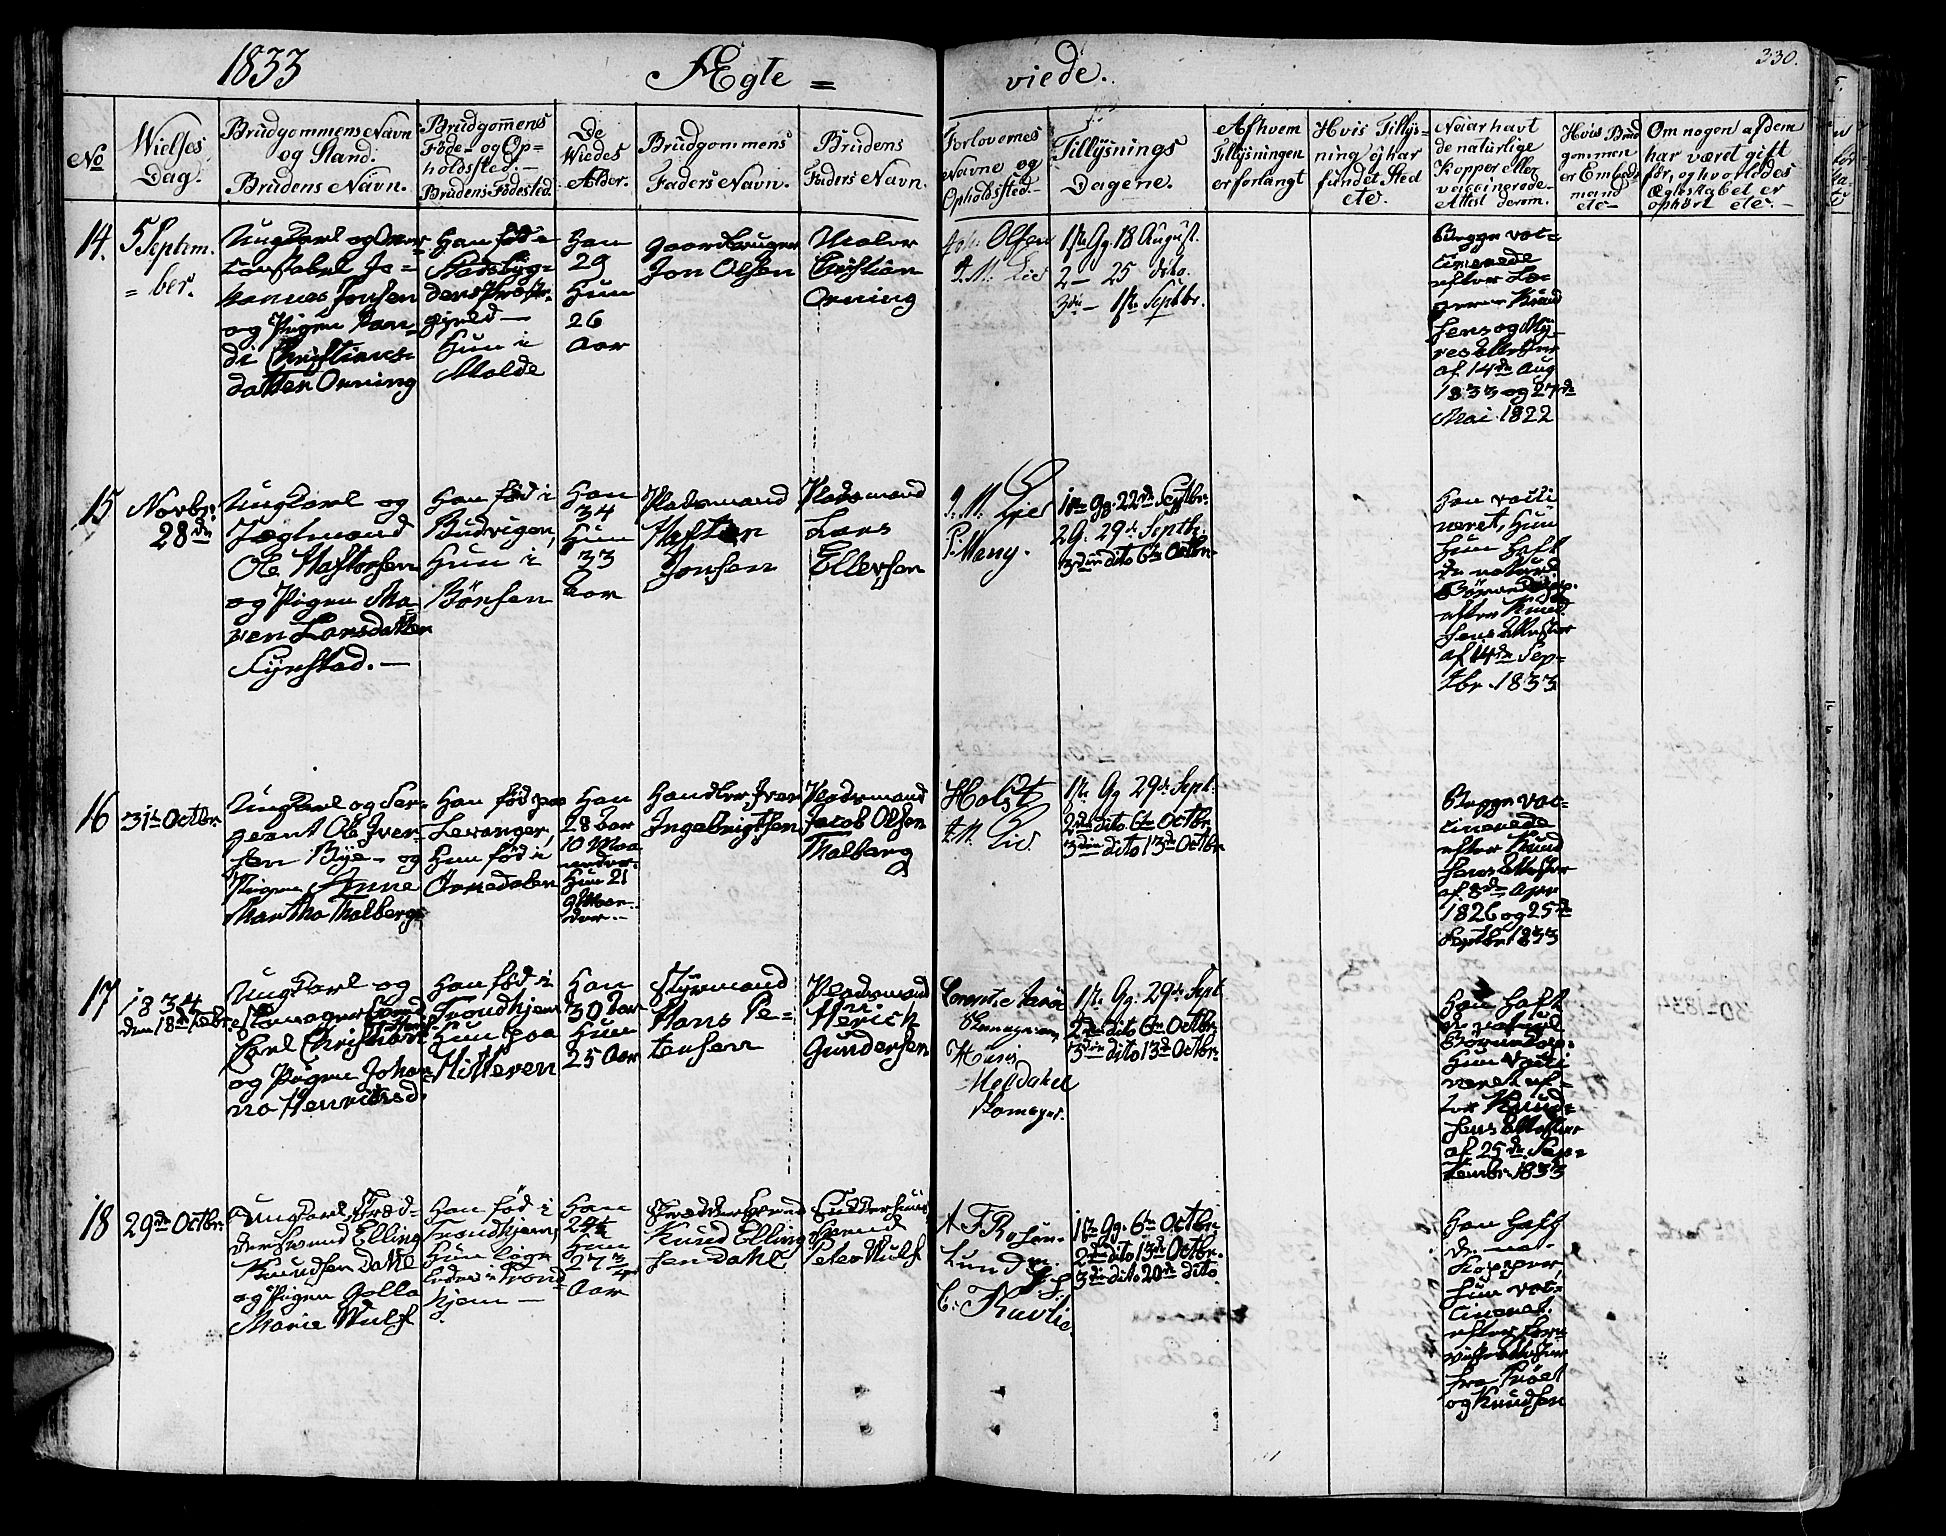 1833
Ægte =
viede.
330.
No
Vielses
Dag.
Brudgommens Navn
og Stand.
Brudens Navn.
Brudgomens
Føde- og Op=
holdssted.-
Brudens Fødested.
De
Viedes
Alder.
Brudgommens
Faders Navn.
Brudens
Faders Navn.
Forlovernes
Navne og
Opholdssted.-
Tillysnings
Dagene.
Afhvem
Tillysningen
er forlangt
Hvis Tillys=
ning ej har
fundet Sted
etc.
Naar havt
de naturlige
Kopper eller
vaccinerede-
Attest derom.
Hvis Brud
gommen
er Embeds
mand
etc-
Om nogen af dem
har været gift
før, og hvorledes
Ægteskabet er
ophørt etc.-
14.
5 Septem.
= ber.
Ungkarl og
Constabel Jo=
hannes Jonsen
og Pigen
Christians=
datter Orning
Han fød i
Stadsbyg=
dens Præste
gjeld-
Hun i
Molde
Han
29
Hun
26
Aar
Gaardbruger
Jon Olsen
Maler
Christian
Orning
Joh: Olsen
1ste Gg. 18 August.
2- 25 dito.
3die- 1ste Septbr.
Begge vac=
cinerede
efter Læ=
gerne Knud
sens og My=
res Attester
af 14de Aug
1833 og 27de
Mai 1822
15
Novbr.
28de
Ungkarl og
Ole Haftorsen
og Pigen Ma=
ren Larsdatter
Han fød i
Budvigen,
Hun i
Børsen
Han
34
Hun
33
Aar
Pladsmand
Jonsen
Pladsmand
Lars
Ellefsen
P: Meng.
1ste Gg. 22de Septbr.
2 G. 29de Septb.
3die dito 6te Octbr.
Han vacci
neret, Hun
efter Knud
sens Attester
af 14de Sep=
tbr. 1833
16
31te Octbr.
Ungkarl og Ser=
geant Ole Iver=
sen Bye- og
Pigen Anne
Martha Thalberg
Han fød paa
Levanger,
Hun fød i
Ørkedalen
Han
28 Aar
10 Maa
neder
Hun 21
9 Maane-
der.-
Handler Iver
Ingebrigtsen
Pladsmand
Jacob Olsen
Thalberg
Holst
1ste Gg 29de Sept.
2de dito 6te Octbr
3die dito 13de Octbr
Begge vac=
cinerede
efter Knud
sens Attester
af 8de Apr
1826 og 25de
Septbr 1833
17
1834
den 18de Febr
Ungkarl og
Skomager
Carl Christian
og Pigen Johan
na Henriksd.
Han fød i
Trondhjem
Hun paa
Hitteren
Han
30 Aar
Hun
25 Aar
Styrmand
Hans Pe=
tersen
Pladsmand
Henrich
Gundersen
Skomager.
1ste Gg. 29de Sept
2de dito 6te Octbr.
3die dito 13de Octbr.
Han haft
de naturl
Hun vacci
neret ef=
ter Knud=
sens Attester
af 25de Sep=
tembr 1833
18
29de Octbr.
Ungkarl, Skræd=
dersvend Elling
Knudsen Dahl
og Pigen
Marie Wulf
Han fød i
Trondhjem,
Hun
i Trond
hjem-
Han
24 1/4
Hun
27 3/4
Aar
Skræddersvend
Knud Elling
sen Dahl
Svend
Peter Wulf
1ste Gg. 6te Octbr.
2de dito 13de Octbr.
3die dito 20de dito
Han haft
de na=
Kopper,
Hun vac=
cineret.
efter
fra
og Knudsen